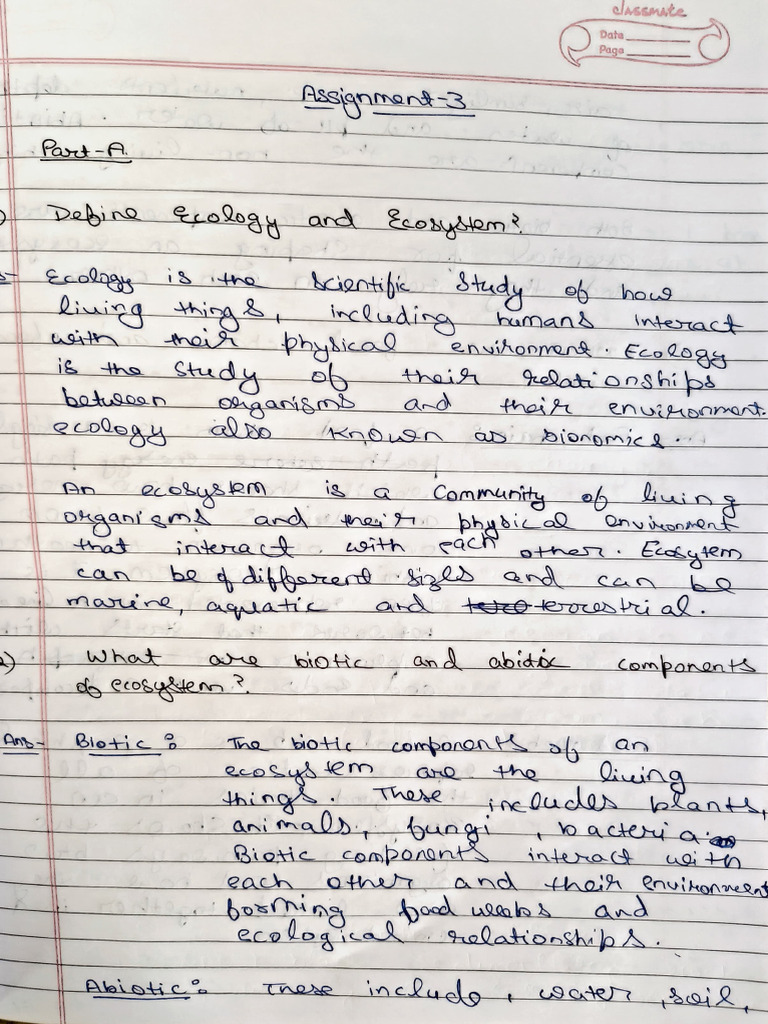 classmate
Date
Page
Assignment-3
Part-A
Define Ecology and Ecosystem?
Ecology is the scientific study of how
living things, including humans interact
with their physical environment. Ecology
is the study of their relationships
between organisms and their environment.
ecology also known as bionomics.
An ecosystem is a community of living
organisms and their physical environment
that interact with each other. Ecosytem
can be of different sizes and can be
marine, aquatic and terrestrial.
2) What are biotic and abiotic components
of ecosystem?
Ans- Biotic: The biotic components of an
ecosystem are the living
things. These includes plants,
animals, fungi, bacteria.
Biotic components interact with
each other and their environment
forming food webs and
ecological relationships.
Abiotic: These include, water, soil,